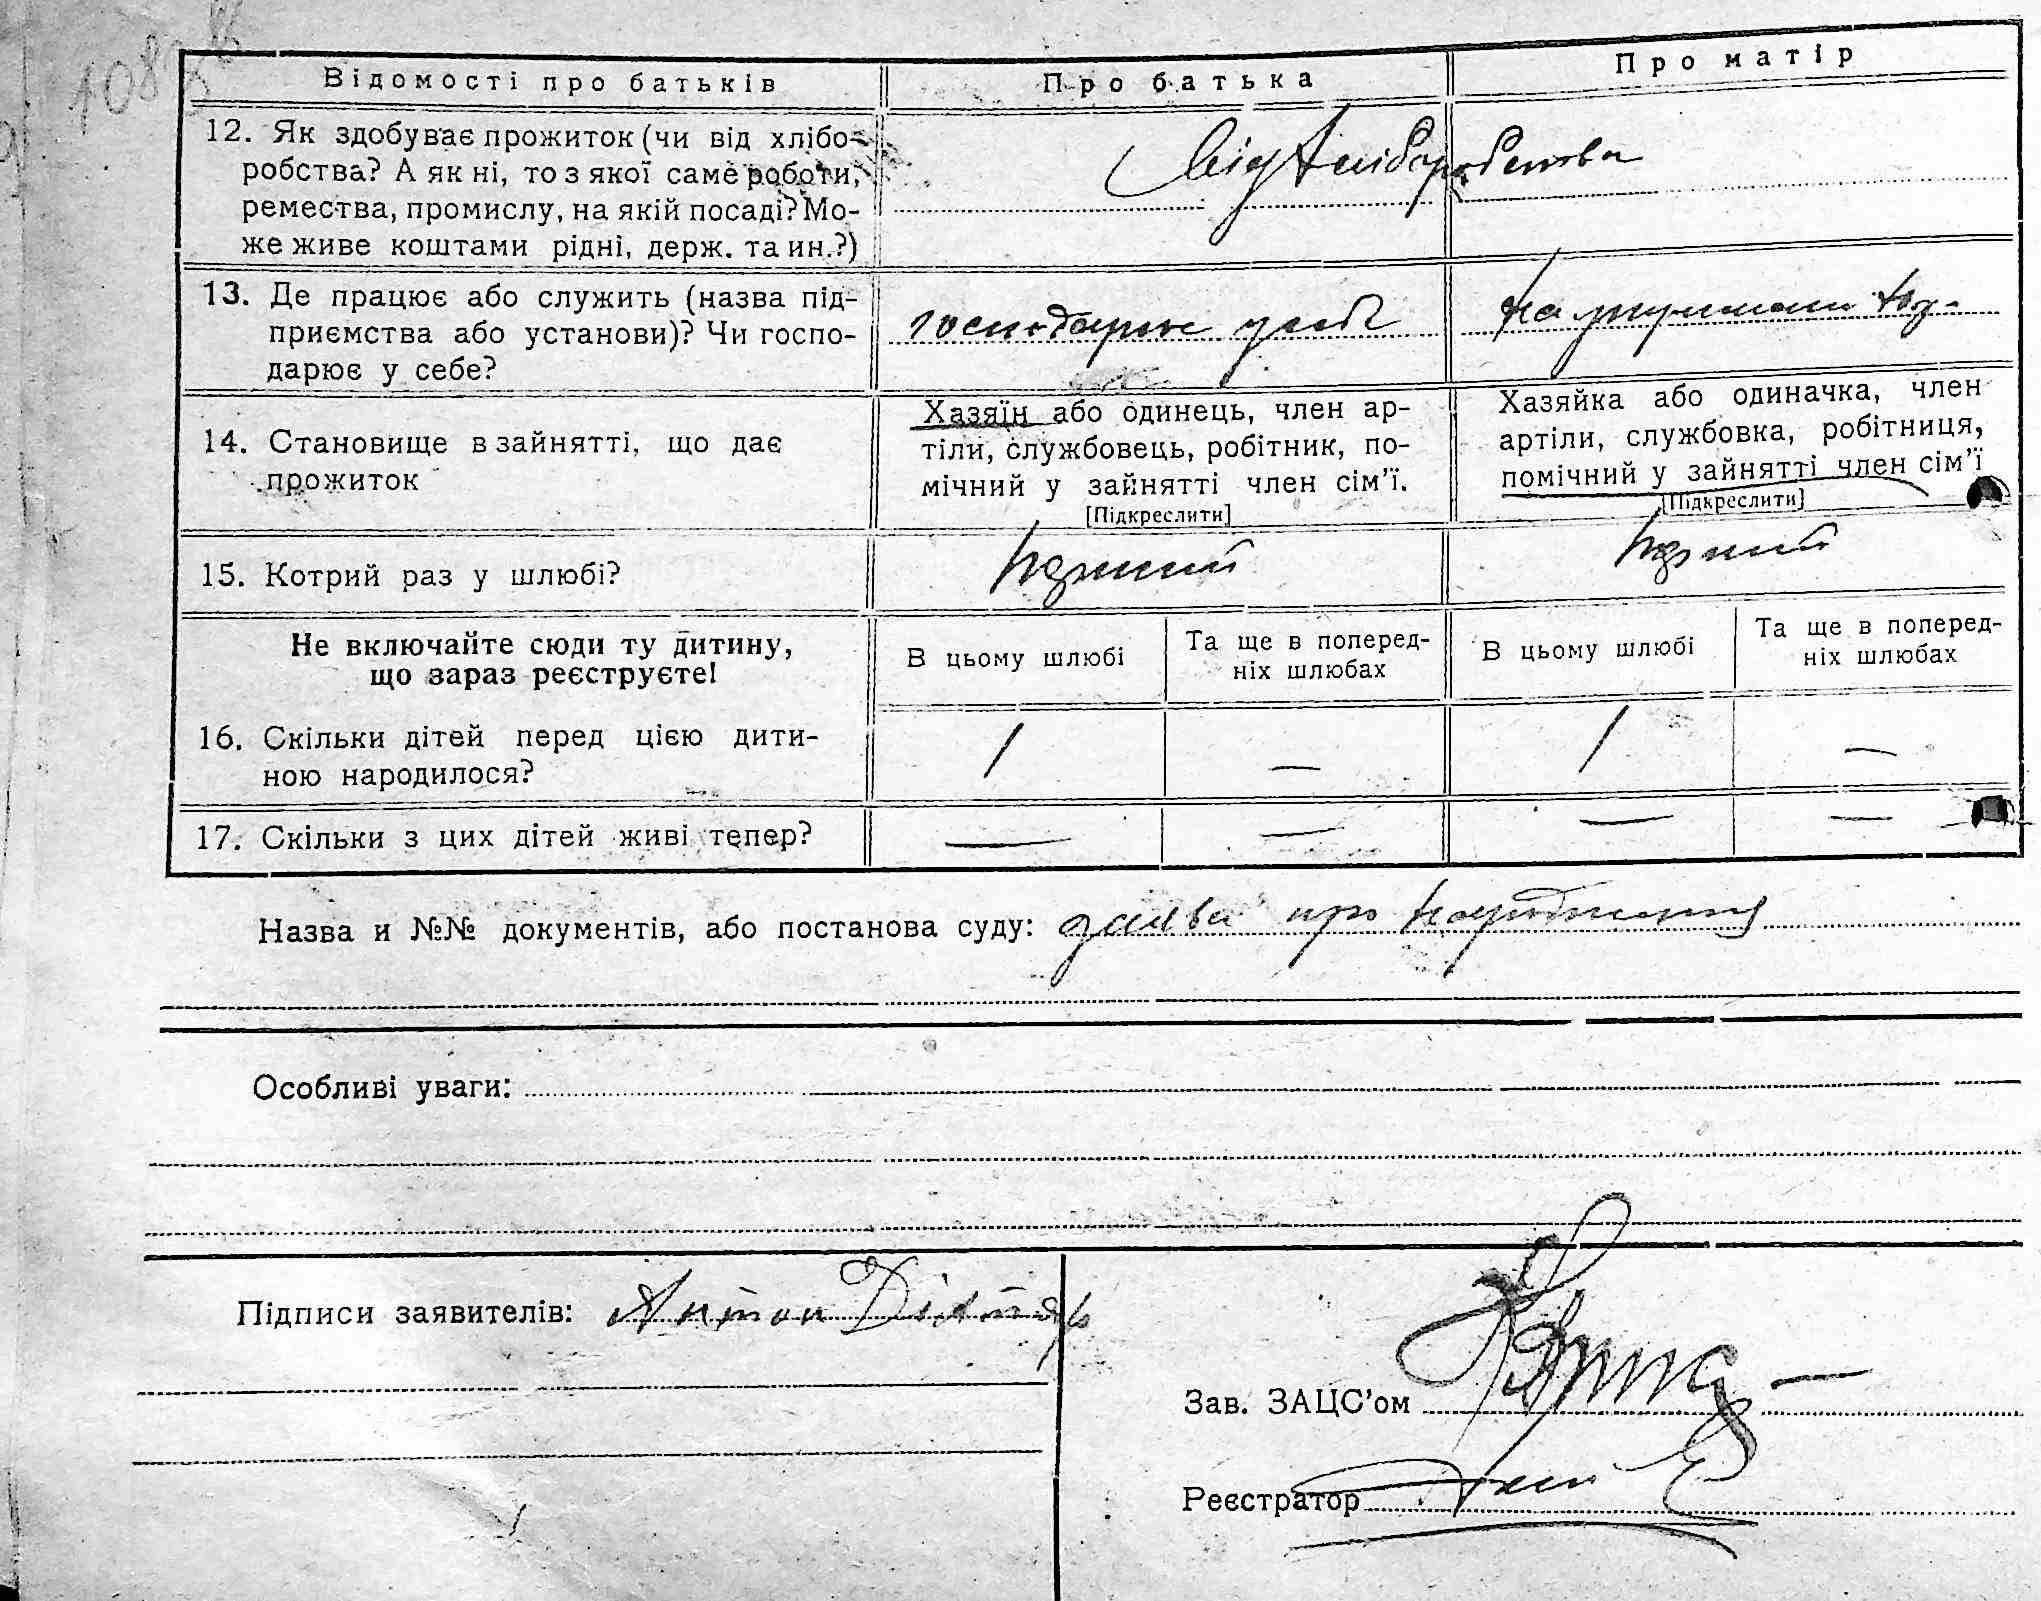 Відомості про батьків Про батька Про матір
12. Як здобуває прожиток (чи від хлібо-
робства? А як ні, то з якої саме роботи,
ремества, промислу, на якій посаді? Мо-
же живе коштами рідні, держ. та ин.?)
Від хліборобства
13. Де працює або служить (назва під-
приємства або установи)? Чи госпо-
дарює у себе?
господарює у себе
на утриманні
14. Становище в зайнятті, що дає
прожиток
Хазяїн або одинець, член ар-
тіли, службовець, робітник, по-
мічний у зайнятті член сім'ї.
[Підкреслити]
Хазяйка або одиначка, член
артіли, службовка, робітниця,
помічний у зайнятті член сім'ї
[Підкреслити]
15. Котрий раз у шлюбі?
Первий
Первий
Не включайте сюди ту дитину,
що зараз реєструєте!
В цьому шлюбі
Та ще в поперед-
ніх шлюбах
В цьому шлюбі
Та ще в поперед-
ніх шлюбах
16. Скільки дітей перед цією дити-
ною народилося?
1 — 1 —
17. Скільки з цих дітей живі тепер?
— — — —
Назва и №№ документів, або постанова суду: заява про народження
Особливі уваги:
Підписи заявителів: Антон
Зав. ЗАЦС'ом
Реєстратор